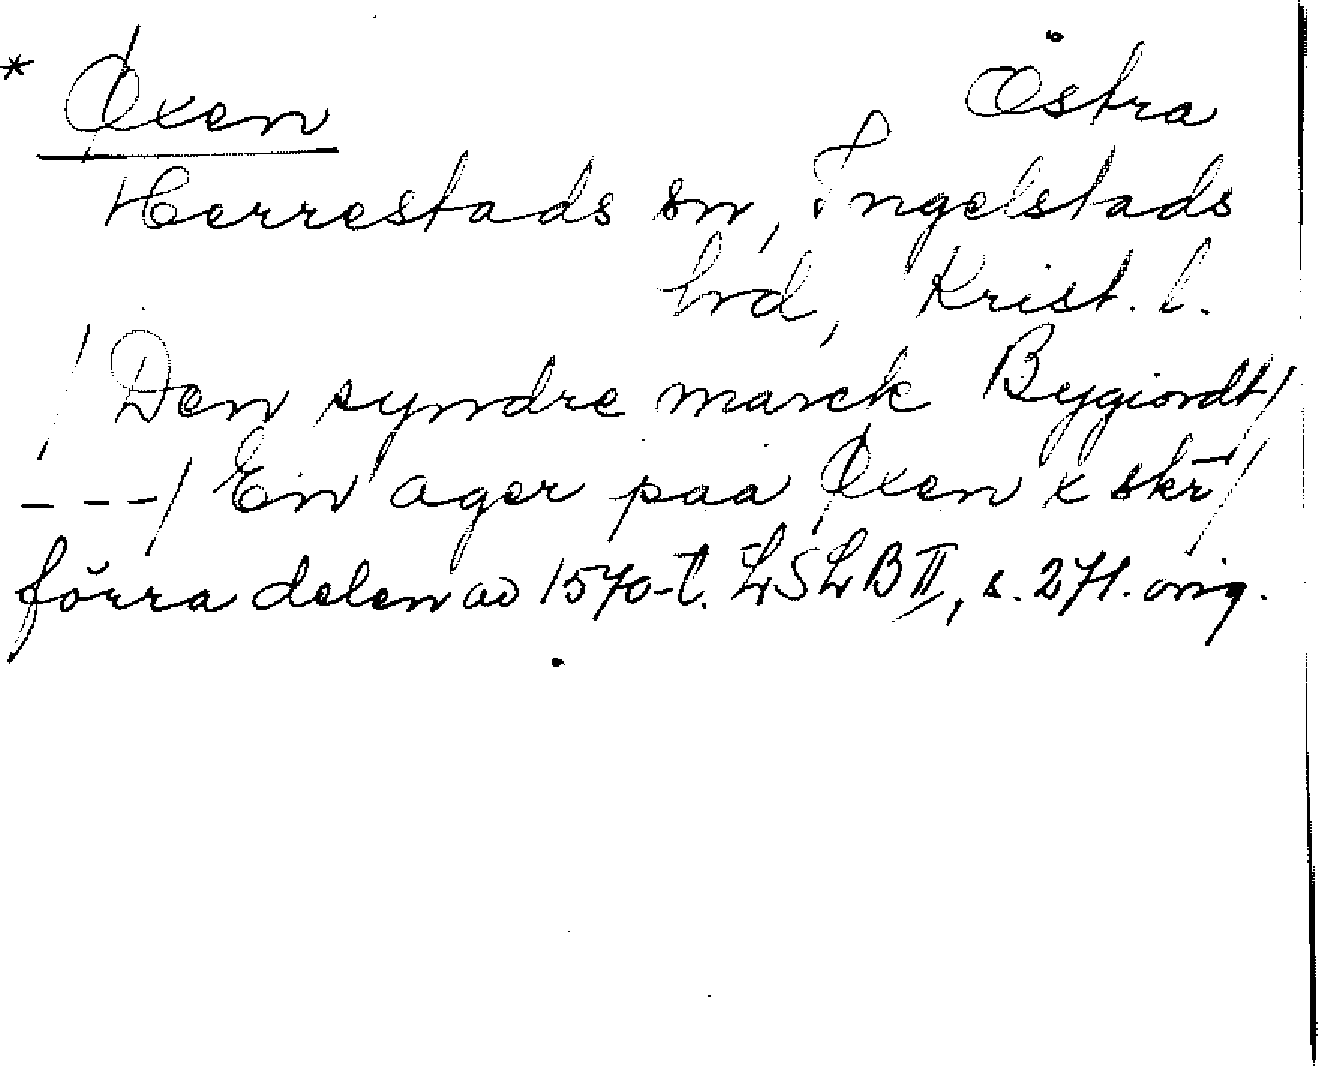 * Øxen Östra
Herrestads sn, Ingelstads
hrd, Krist. l.
/ Den syndre marck Bygiordt /
- - - / En ager paa Øxen x skr̄ /
förra delen av 1570-t. LSLB II, s. 271. orig.